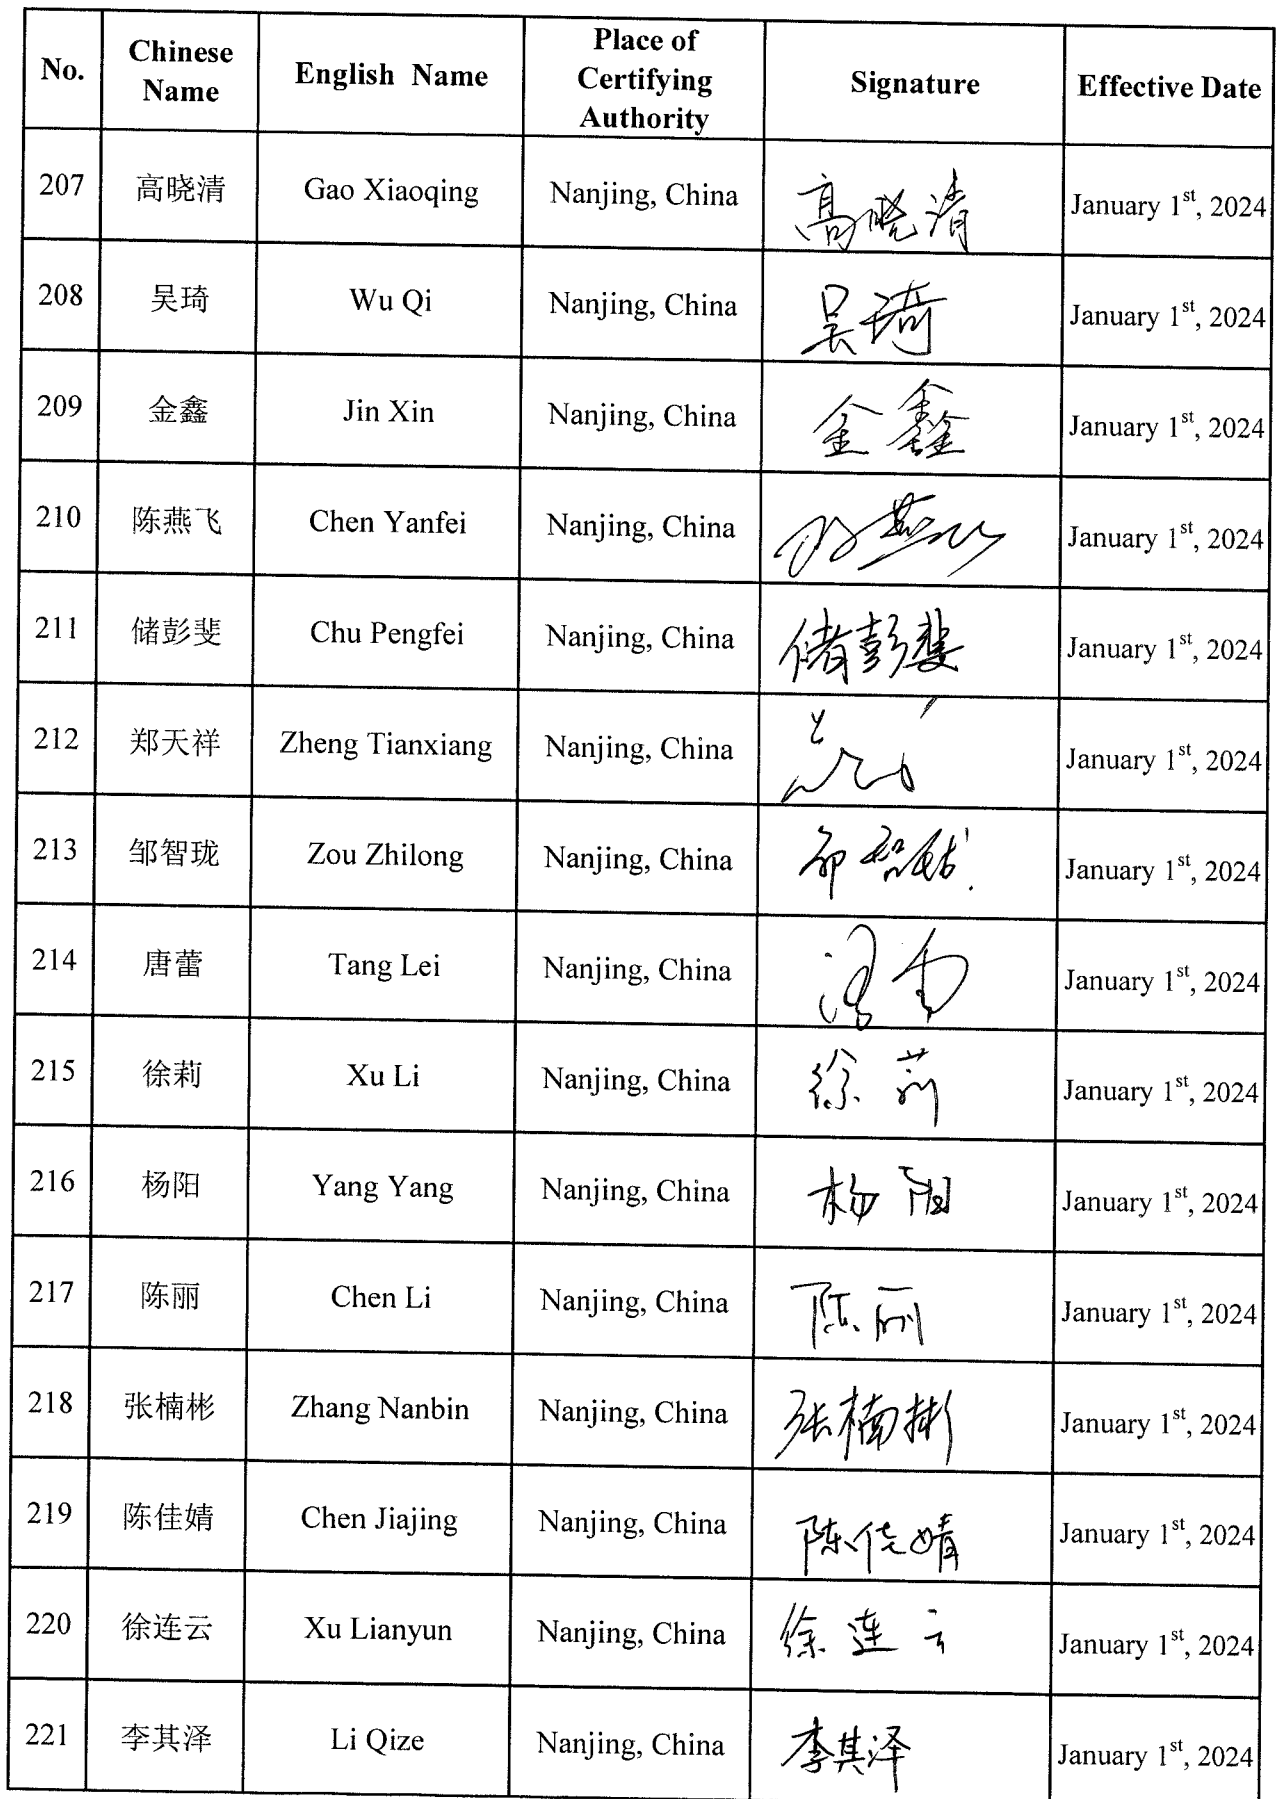 No. Chinese Name English Name Place of Certifying Authority Signature Effective Date
207 高晓清 Gao Xiaoqing Nanjing, China 高晓清 January 1st, 2024
208 吴琦 Wu Qi Nanjing, China 吴琦 January 1st, 2024
209 金鑫 Jin Xin Nanjing, China 金鑫 January 1st, 2024
210 陈燕飞 Chen Yanfei Nanjing, China January 1st, 2024
211 储彭斐 Chu Pengfei Nanjing, China 储彭斐 January 1st, 2024
212 郑天祥 Zheng Tianxiang Nanjing, China January 1st, 2024
213 邹智珑 Zou Zhilong Nanjing, China January 1st, 2024
214 唐蕾 Tang Lei Nanjing, China January 1st, 2024
215 徐莉 Xu Li Nanjing, China 徐莉 January 1st, 2024
216 杨阳 Yang Yang Nanjing, China 杨阳 January 1st, 2024
217 陈丽 Chen Li Nanjing, China 陈丽 January 1st, 2024
218 张楠彬 Zhang Nanbin Nanjing, China 张楠彬 January 1st, 2024
219 陈佳婧 Chen Jiajing Nanjing, China 陈佳婧 January 1st, 2024
220 徐连云 Xu Lianyun Nanjing, China 徐连云 January 1st, 2024
221 李其泽 Li Qize Nanjing, China 李其泽 January 1st, 2024